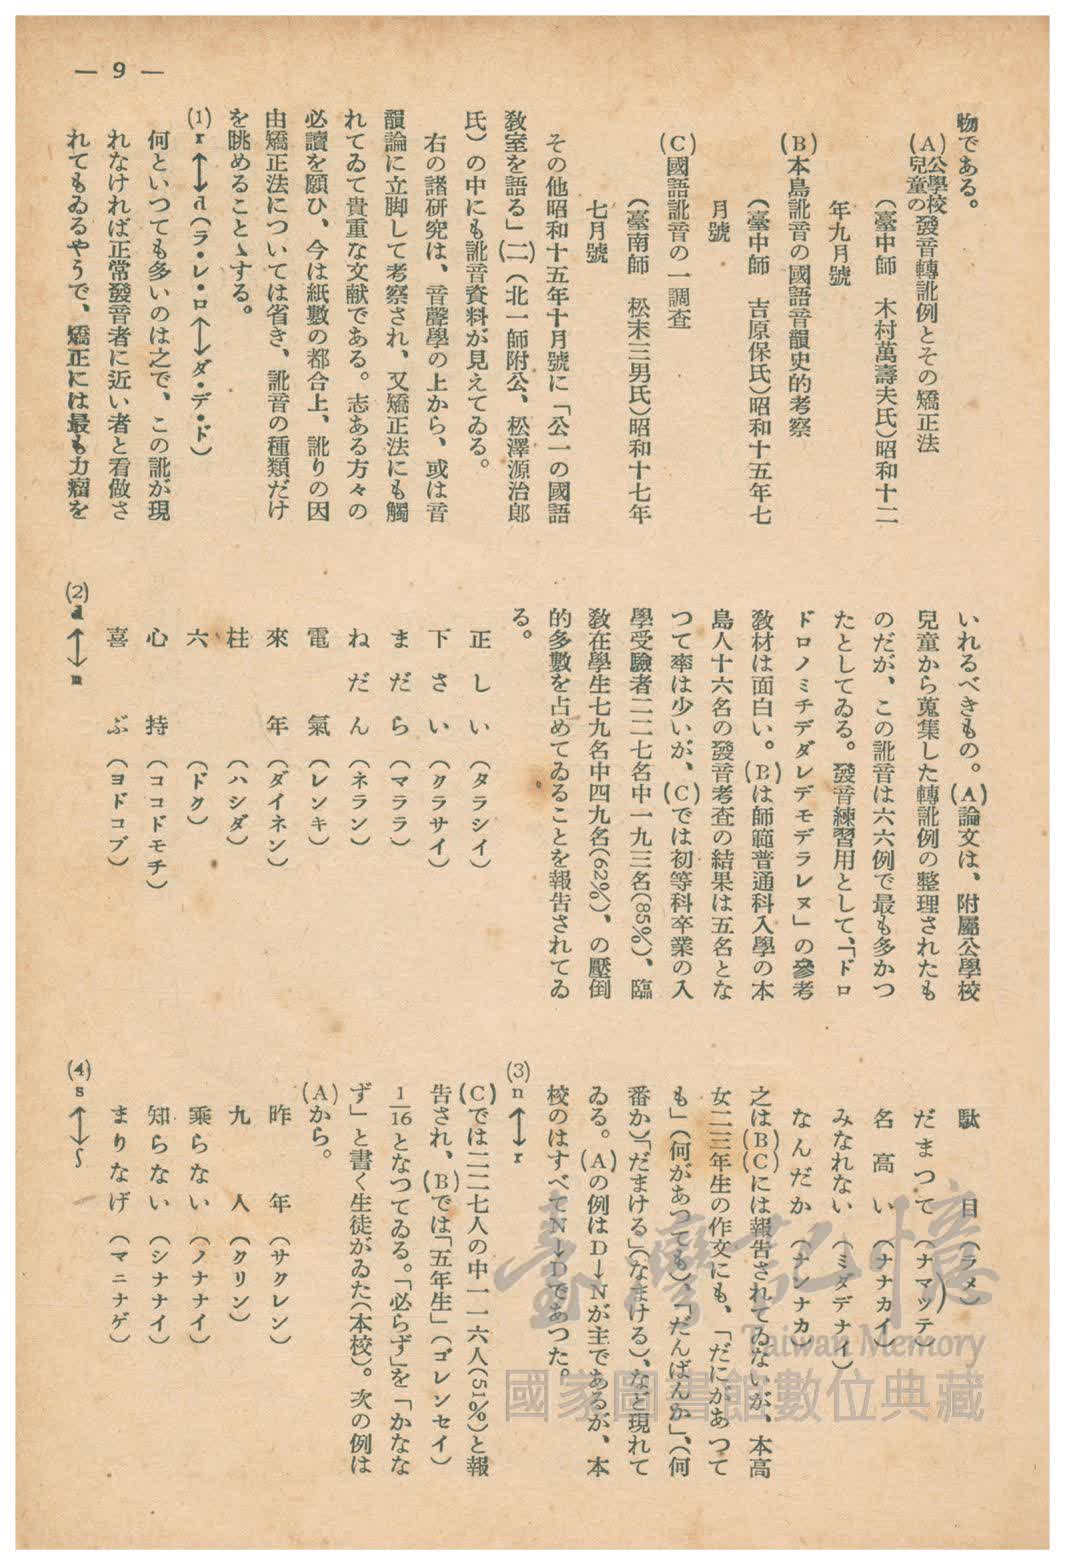 — 9 —
物である。
(A)公學校兒童の發音轉訛例とその矯正法
(臺中師　木村萬壽夫氏)昭和十二
年九月號
(B)本島訛音の國語音韻史的考察
(臺中師　吉原保氏)昭和十五年七
月號
(C)國語訛音の一調査
(臺南師　松末三男氏)昭和十七年
七月號
その他昭和十五年十月號に「公一の國語
教室を語る」(二)(北一師附公、松澤源治郎
氏)の中にも訛音資料が見えてゐる。
右の諸研究は、音聲學の上から、或は音
韻論に立脚して考察され、又矯正法にも觸
れてゐて貴重な文献である。志ある方々の
必讀を願ひ、今は紙數の都合上、訛りの因
由矯正法については省き、訛音の種類だけ
を眺めることゝする。
(1) r ⟷ d (ラ・レ・ロ⟷ダ・デ・ド)
何といつても多いのは之で、この訛が現
れなければ正常發音者に近い者と看做さ
れてもゐるやうで、矯正には最も力瘤を
いれるべきもの。(A)論文は、附屬公學校
兒童から蒐集した轉訛例の整理されたも
のだが、この訛音は六六例で最も多かつ
たとしてゐる。發音練習用として、「ドロ
ドロノミチデダレデモデラレヌ」の參考
教材は面白い。(B)は師範普通科入學の本
島人十六名の發音考査の結果は五名とな
つて率は少いが、(C)では初等科卒業の入
學受驗者二二七名中一九三名(85%)、臨
教在學生七九名中四九名(62%)、の壓倒
的多數を占めてゐることを報告されてゐ
る。
正しい (タラシイ)
下さい (クラサイ)
まだら (マララ)
ねだん (ネラン)
電氣 (レンキ)
來年 (ダイネン)
柱 (ハシダ)
六 (ドク)
心持 (ココドモチ)
喜ぶ (ヨドコブ)
(2) d ⟷ n
駄目 (ラメ)
だまつて (ナマッテ)
名高い (ナナカイ)
みなれない (ミダデナイ)
なんだか (ナンナカ)
之は(B)(C)には報告されてゐないが、本高
女二三年生の作文にも、「だにがあつて
も」(何があつても)、「だんばんか」、(何
番か)「だまける」(なまける)、など現れて
ゐる。(A)の例はD→Nが主であるが、本
校のはすべてN→Dであつた。
(3) n ⟷ r
(C)では二二七人の中一一六人(51%)と報
告され、(B)では「五年生」(ゴレンセイ)
1/16となつてゐる。「必らず」を「かなな
ず」と書く生徒がゐた(本校)。次の例は
(A)から。
昨年 (サクレン)
九人 (クリン)
乘らない (ノナナイ)
知らない (シナナイ)
まりなげ (マニナゲ)
(4) s ⟷ ʃ
臺灣記憶
Taiwan Memory
國家圖書館數位典藏